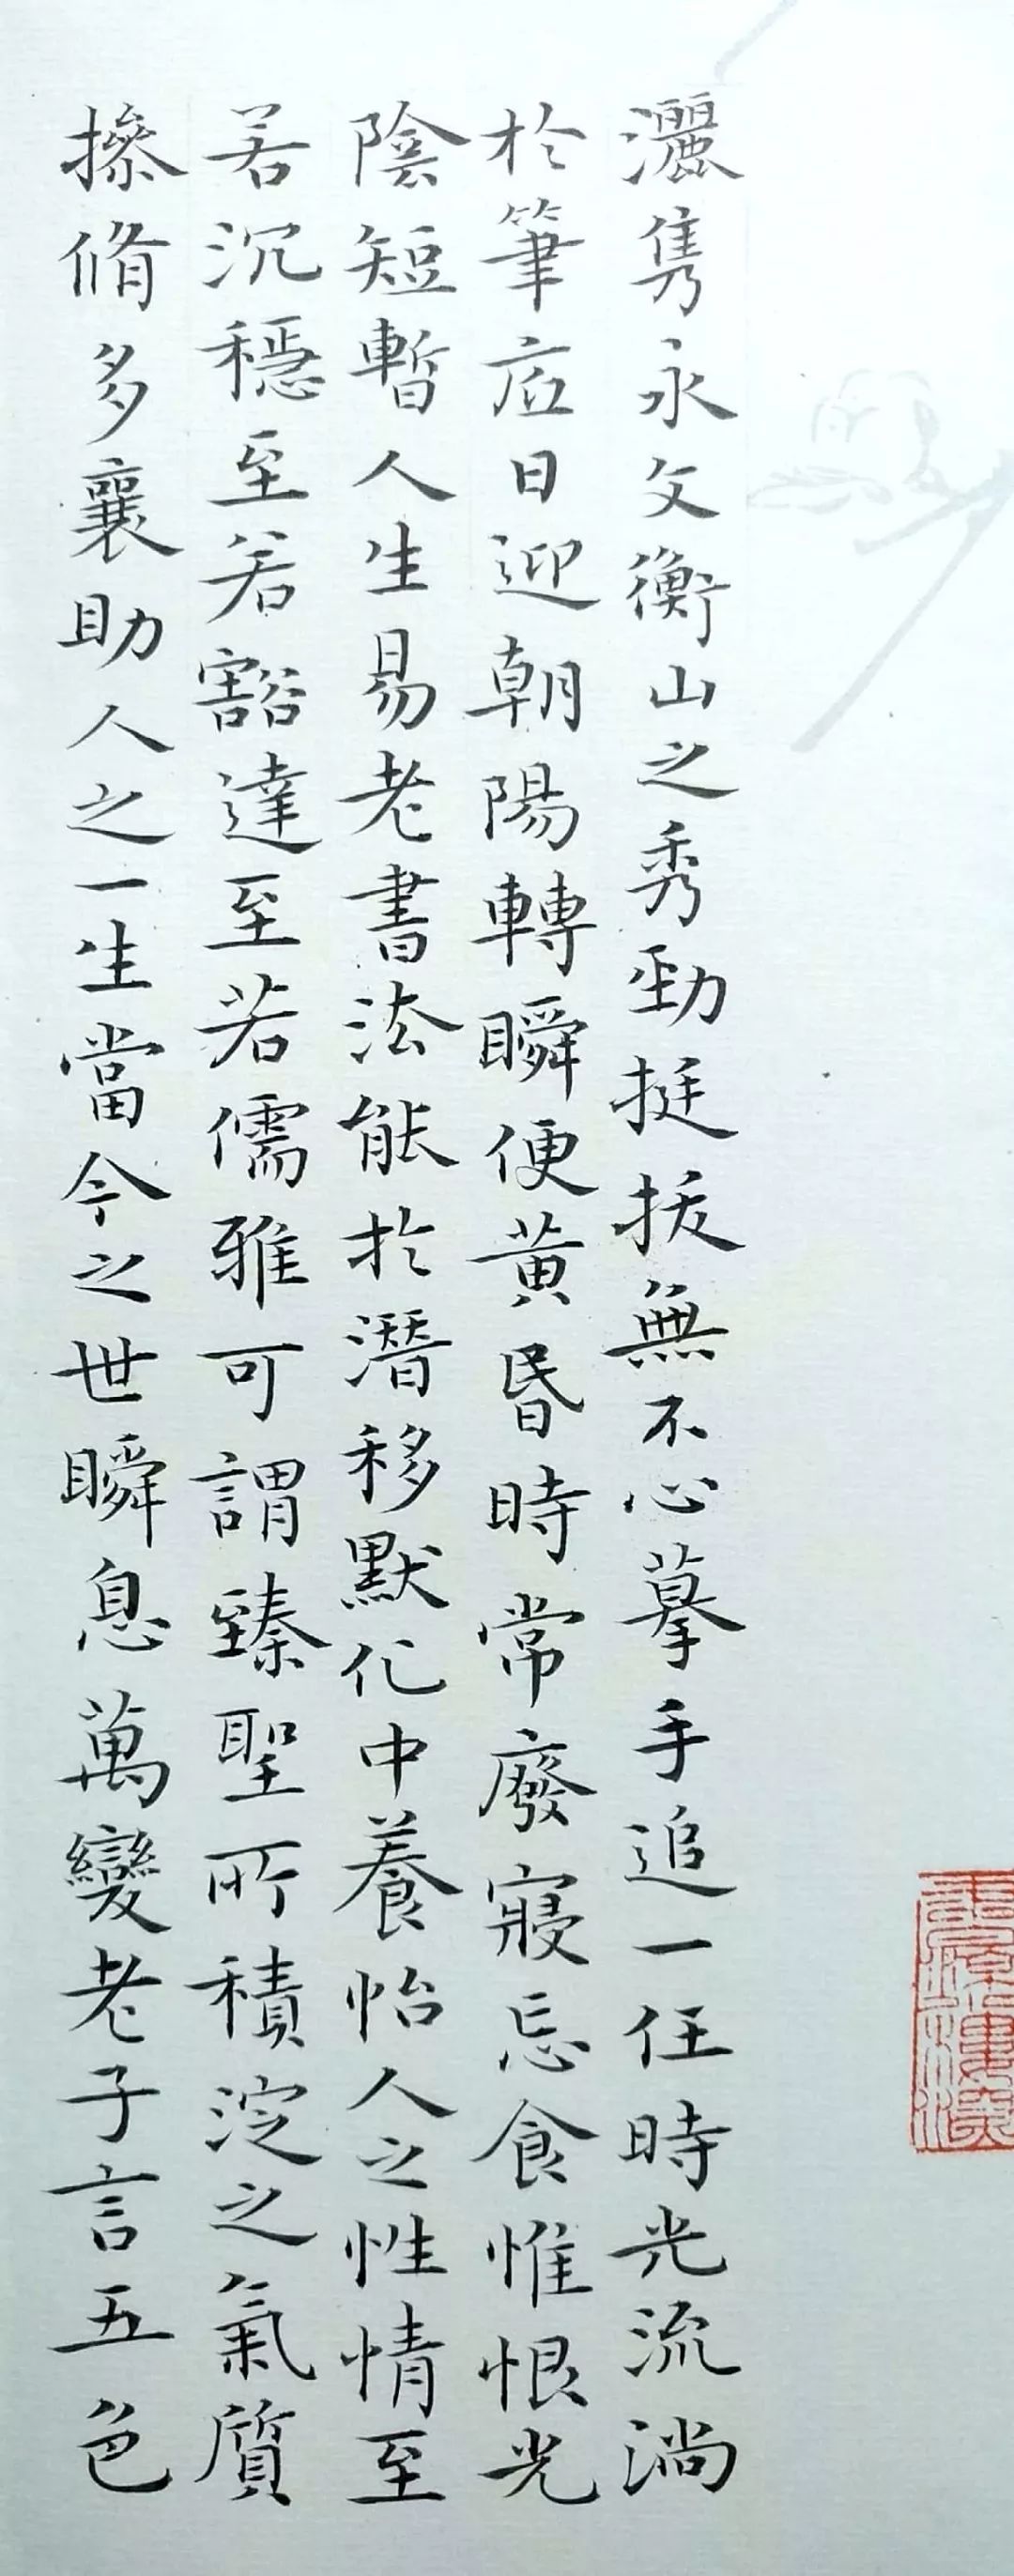 灑隽永文衡山之秀勁挺拔無不心摹手追一任時光流淌
於筆底日迎朝陽轉瞬便黃昬時常廢寢忘食惟恨光
陰短暫人生易老書法能於潛移默化中養怡人之性情至
若沉穩至若豁達至若儒雅可謂臻聖所積淀之氣質
摻脩多襄助人之一生當今之世瞬息萬變老子言五色